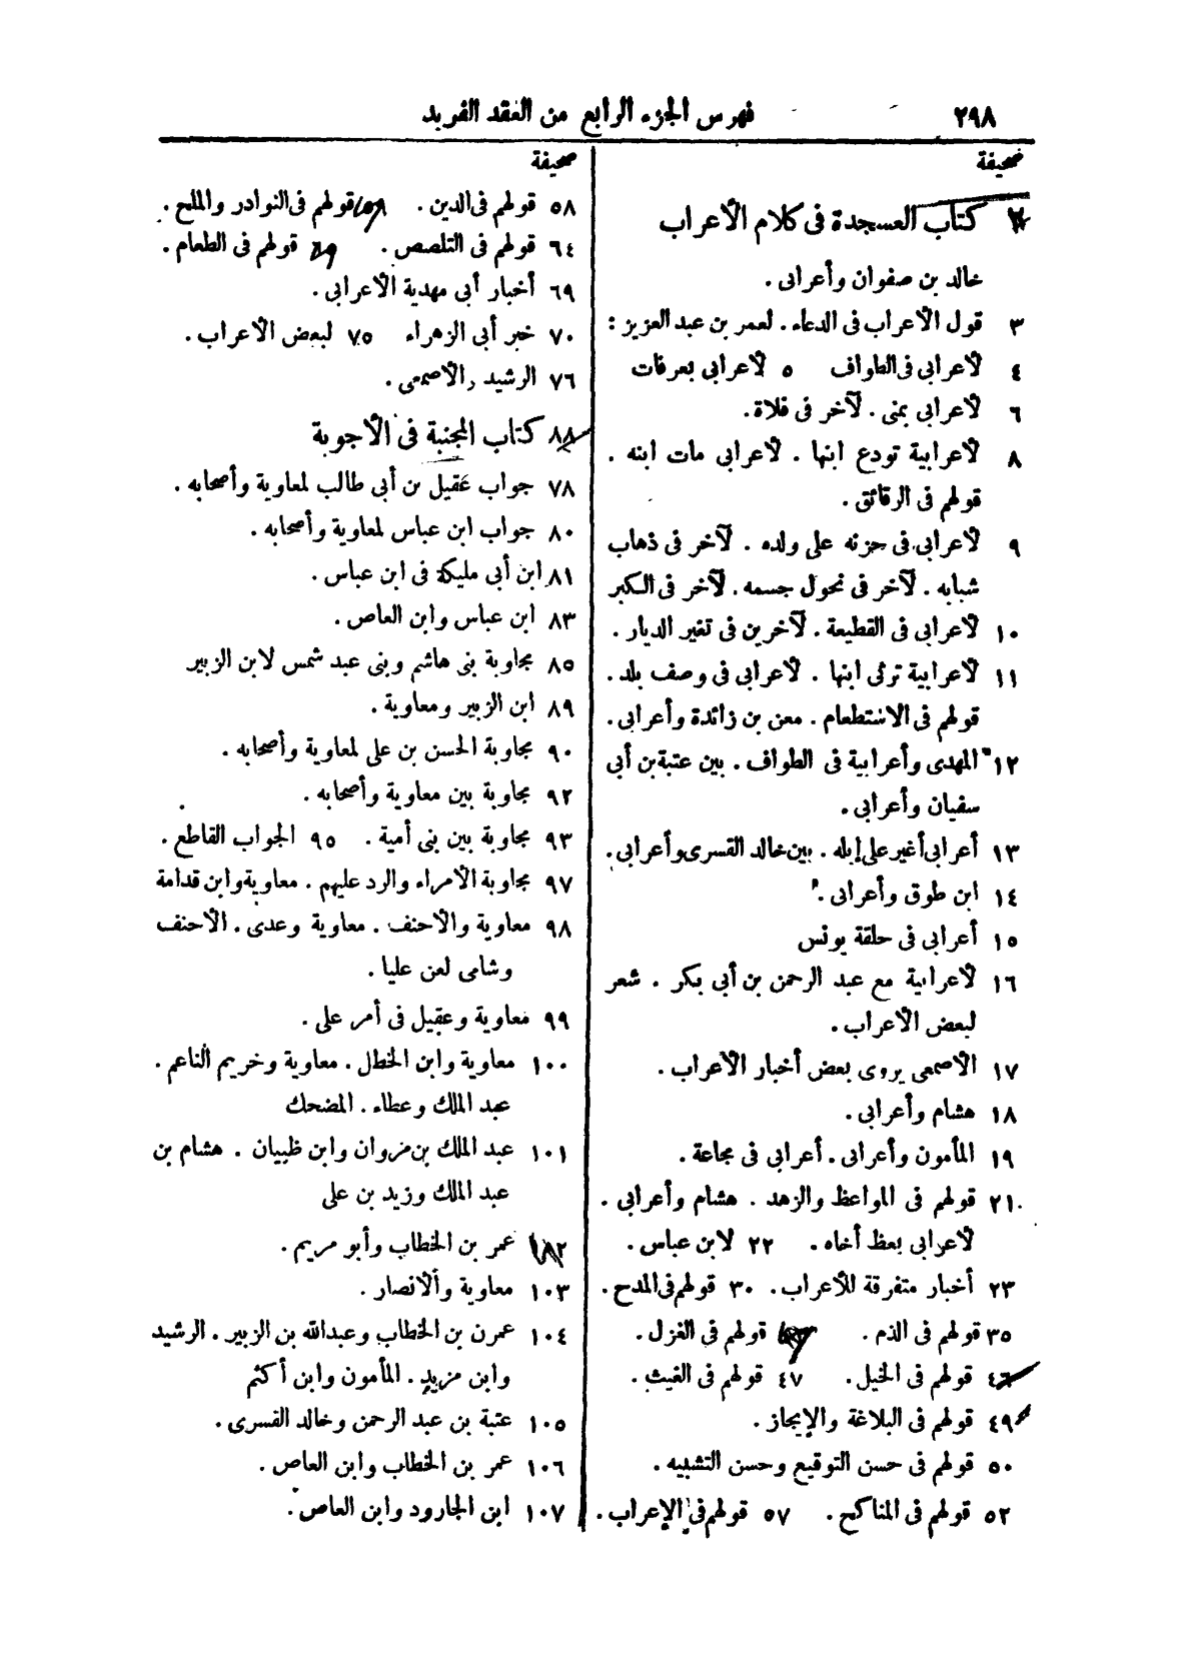 ٢٩٨ فهرس الجزء الرابع من العقد الفريد
صحيفة
كتاب العسجدة فى كلام الأعراب
خالد بن صفوان وأعرابى .
٣ قول الأعراب فى الدعاء . لعمر بن عبد العزيز :
٤ لأعرابى فى الطواف ٥ لأعرابى بعرفات
٦ لأعرابى بمنى . لآخر فى فلاة .
٨ لأعرابية تودع ابنها . لأعرابى مات ابنه .
قولهم فى الرقائق .
٩ لأعرابى فى حزنه على ولده . لآخر فى ذهاب
شبابه . لآخر فى نحول جسمه . لآخر فى الكبر
١٠ لأعرابى فى القطيعة . لآخرين فى تغير الديار .
١١ لأعرابية ترثى ابنها . لأعرابى فى وصف بلد .
قولهم فى الاستطعام . معن بن زائدة وأعرابى .
١٢ المهدى وأعرابية فى الطواف . بين عتبة بن أبى
سفيان وأعرابى .
١٣ أعرابى أغير على إبله . بين خالد القسرى وأعرابى .
١٤ ابن طوق وأعرابى .
١٥ أعرابى فى حلقة يونس
١٦ لأعرابية مع عبد الرحمن بن أبى بكر . شعر
لبعض الأعراب .
١٧ الأصمعى يروى بعض أخبار الأعراب .
١٨ هشام وأعرابى .
١٩ المأمون وأعرابى . أعرابى فى مجاعة .
٢١ قولهم فى المواعظ والزهد . هشام وأعرابى .
لأعرابى يعظ أخاه . ٢٢ لابن عباس .
٢٣ أخبار متفرقة للأعراب . ٣٠ قولهم فى المدح .
٣٥ قولهم فى الذم . قولهم فى الغزل .
٤٦ قولهم فى الخيل . ٤٧ قولهم فى الغيث .
٤٩ قولهم فى البلاغة والإيجاز .
٥٠ قولهم فى حسن التوقيع وحسن التشبيه .
٥٢ قولهم فى المناكح . ٥٧ قولهم فى الإعراب .
صحيفة
٥٨ قولهم فى الدين . قولهم فى النوادر والملح .
٦٤ قولهم فى التلصص . قولهم فى الطعام .
٦٩ أخبار أبى مهدية الأعرابى .
٧٠ خبر أبى الزهراء ٧٥ لبعض الأعراب .
٧٦ الرشيد والأصمعى .
٨٨ كتاب المجنبة فى الأجوبة
٧٨ جواب عقيل بن أبى طالب لمعاوية وأصحابه .
٨٠ جواب ابن عباس لمعاوية وأصحابه .
٨١ ابن أبى مليكة فى ابن عباس .
٨٣ ابن عباس وابن العاص .
٨٥ مجاوبة بنى هاشم وبنى عبد شمس لابن الزبير
٨٩ ابن الزبير ومعاوية .
٩٠ مجاوبة الحسن بن على لمعاوية وأصحابه .
٩٢ مجاوبة بين معاوية وأصحابه .
٩٣ مجاوبة بين بنى أمية . ٩٥ الجواب القاطع .
٩٧ مجاوبة الأمراء والرد عليهم . معاوية وابن قدامة
٩٨ معاوية والأحنف . معاوية وعدى . الأحنف
وشامى لعن عليا .
٩٩ معاوية وعقيل فى أمر على .
١٠٠ معاوية وابن الخطل . معاوية وخريم الناعم .
عبد الملك وعطاء . المضحك
١٠١ عبد الملك بن مروان وابن ظبيان . هشام بن
عبد الملك وزيد بن على
عمر بن الخطاب وأبو مريم .
١٠٣ معاوية والأنصار .
١٠٤ عمرن بن الخطاب وعبدالله بن الزبير . الرشيد
وابن مزيد . المأمون وابن أكثم
١٠٥ عتبة بن عبد الرحمن وخالد القسرى .
١٠٦ عمر بن الخطاب وابن العاص .
١٠٧ ابن الجارود وابن العاص .